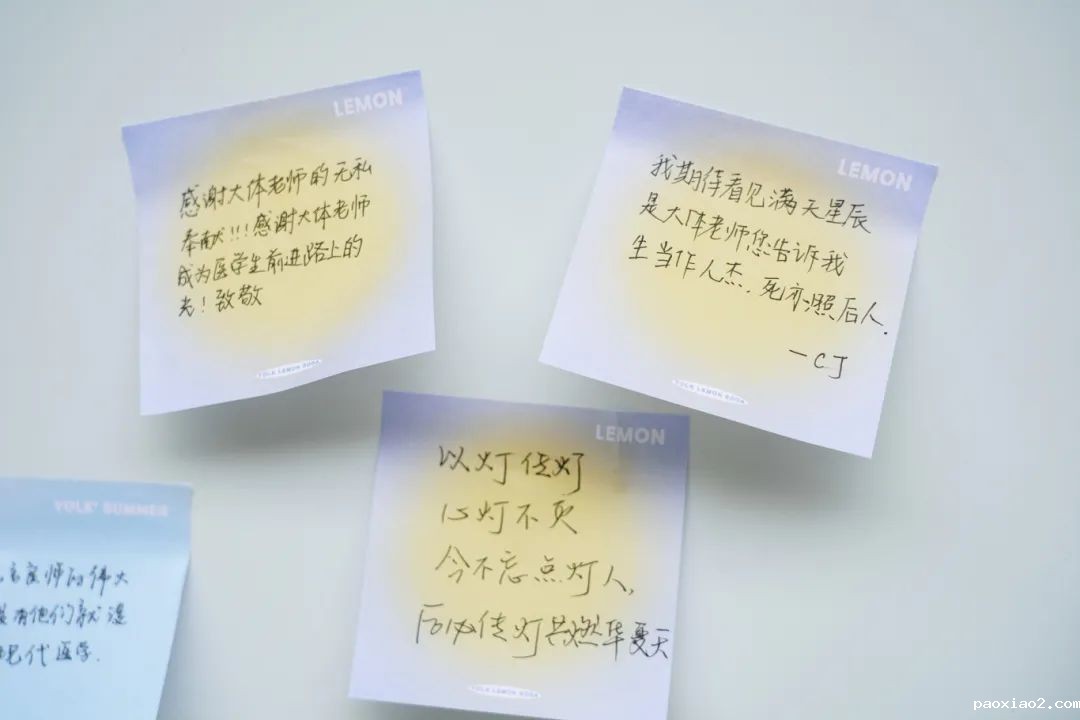 LEMON
感谢大体老师的无私
奉献!!!感谢大体老师
成为医学生前进路上的
光!致敬
YOLK LEMON SODA
LEMON
我期待看见满天星辰
是大体老师您告诉我
生当作人杰,死亦照后人.
—CJ
YOLK LEMON SODA
LEMON
以灯传灯
心灯不灭
今不忘点灯人,
后必传灯共燃华夏天
YOLK LEMON SODA
YOLK' SUMMER
师的伟大
没有他们就没
现代医学.
paoxiao2.com